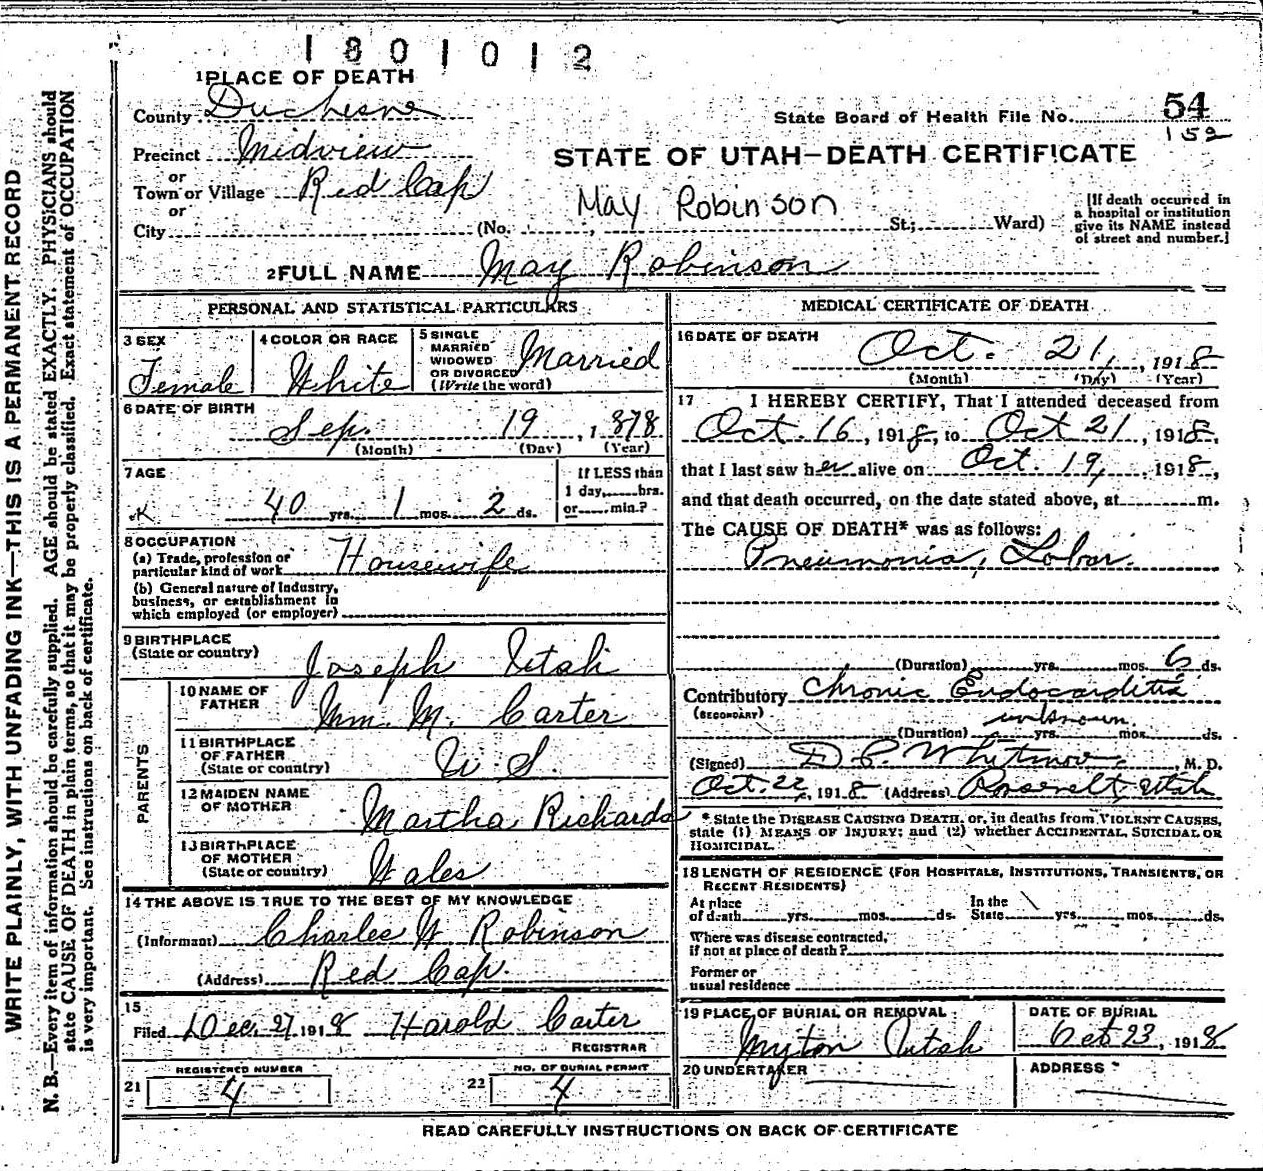 1801012
1 PLACE OF DEATH
County Duchesne
State Board of Health File No. 54
152
Precinct Midview
STATE OF UTAH—DEATH CERTIFICATE
or
Town or Village Red Cap
May Robinson
or
City (No. , St.; Ward)
[If death occurred in
a hospital or institution
give its NAME instead
of street and number.]
2 FULL NAME May Robinson
PERSONAL AND STATISTICAL PARTICULARS
3 SEX
Female
4 COLOR OR RACE
White
5 SINGLE
MARRIED
WIDOWED
OR DIVORCED
(Write the word)
Married
6 DATE OF BIRTH
Sep. 19, 1878
(Month) (Day) (Year)
7 AGE
40 yrs. 1 mos. 2 ds.
If LESS than
1 day, hrs.
or min.?
8 OCCUPATION
(a) Trade, profession or
particular kind of work Housewife
(b) General nature of industry,
business, or establishment in
which employed (or employer)
9 BIRTHPLACE
(State or country) Joseph Utah
PARENTS
10 NAME OF
FATHER Wm. M. Carter
11 BIRTHPLACE
OF FATHER
(State or country) U S.
12 MAIDEN NAME
OF MOTHER Martha Richards
13 BIRTHPLACE
OF MOTHER
(State or country) Wales
14 THE ABOVE IS TRUE TO THE BEST OF MY KNOWLEDGE
(Informant) Charles W Robinson
(Address) Red Cap.
15
Filed Dec. 27, 1918 Harold Carter
REGISTRAR
21 REGISTERED NUMBER
4
22 NO. OF BURIAL PERMIT
4
MEDICAL CERTIFICATE OF DEATH
16 DATE OF DEATH
Oct. 21, 1918
(Month) (Day) (Year)
17 I HEREBY CERTIFY, That I attended deceased from
Oct. 16, 1918, to Oct 21, 1918,
that I last saw her alive on Oct. 19, 1918,
and that death occurred, on the date stated above, at m.
The CAUSE OF DEATH* was as follows:
Pneumonia, Lobar.
(Duration) yrs. mos. 6 ds.
Contributory Chronic Endocarditis
(SECONDARY)
unknown.
(Duration) yrs. mos. ds.
(Signed) D. C. Whitmore, M. D.
Oct. 22, 1918 (Address) Roosevelt, Utah
* State the DISEASE CAUSING DEATH, or, in deaths from VIOLENT CAUSES,
state (1) MEANS OF INJURY; and (2) whether ACCIDENTAL, SUICIDAL OR
HOMICIDAL.
18 LENGTH OF RESIDENCE (FOR HOSPITALS, INSTITUTIONS, TRANSIENTS, OR
RECENT RESIDENTS)
At place
of death yrs. mos. ds.
In the
State yrs. mos. ds.
Where was disease contracted,
if not at place of death?
Former or
usual residence
19 PLACE OF BURIAL OR REMOVAL
Myton Utah
DATE OF BURIAL
Oct 23, 1918
20 UNDERTAKER
ADDRESS
READ CAREFULLY INSTRUCTIONS ON BACK OF CERTIFICATE
WRITE PLAINLY, WITH UNFADING INK—THIS IS A PERMANENT RECORD
N. B.—Every item of information should be carefully supplied. AGE should be stated EXACTLY. PHYSICIANS should
state CAUSE OF DEATH in plain terms, so that it may be properly classified. Exact statement of OCCUPATION
is very important. See instructions on back of certificate.